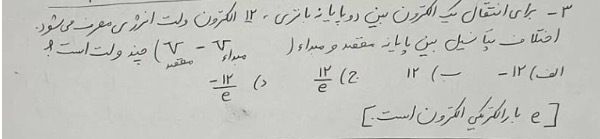 ۳- برای انتقال یک الکترون بین دو پایانه باتری، ۱۲ الکترون ولت انرژی مصرف می‌شود.
اختلاف پتانسیل بین پایانه مقصد و مبداء (V مبداء - V مقصد) چند ولت است؟
الف) ۱۲- ب) ۱۲ ج) ۱۲/e د) -۱۲/e
[e بار الکتریکی الکترون است.]